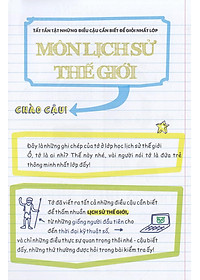 TẤT TẦN TẬT NHỮNG ĐIỀU CẬU CẦN BIẾT ĐỂ GIỎI NHẤT LỚP
MÔN LỊCH SỬ
THẾ GIỚI
CHÀO CẬU!
Đây là những ghi chép của tớ ở lớp học lịch sử thế giới
Ồ, tớ là ai nhỉ? Thế này nhé, vài người nói tớ là đứa trẻ
thông minh nhất lớp đấy!
Tớ đã viết ra tất cả những điều cậu cần biết
để thấm nhuần LỊCH SỬ THẾ GIỚI,
từ những giống người đầu tiên cho
đến thời đại kỹ thuật số,
và chỉ những điều thực sự quan trọng thôi nhé - cậu biết
đấy, những thứ thường được hỏi trong bài kiểm tra ấy!